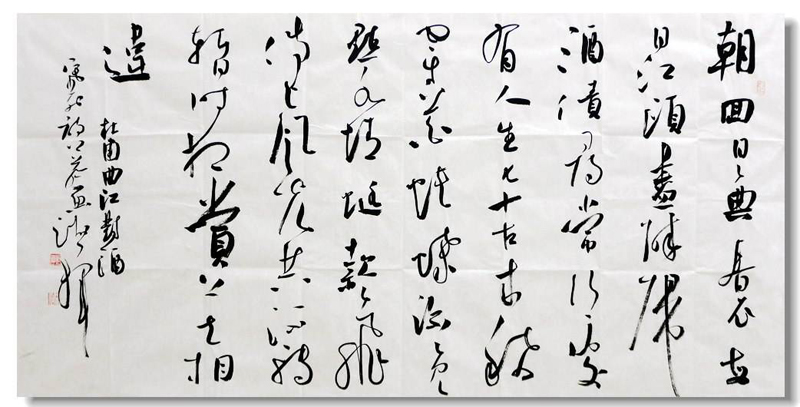 朝回日々典春衣每
日江頭盡醉歸
酒債尋常行處
有人生七十古來稀
穿花蛺蝶深々見
點水蜻蜓款々飛
傳語風光共流轉
暫時相賞莫相
違
杜甫曲江對酒